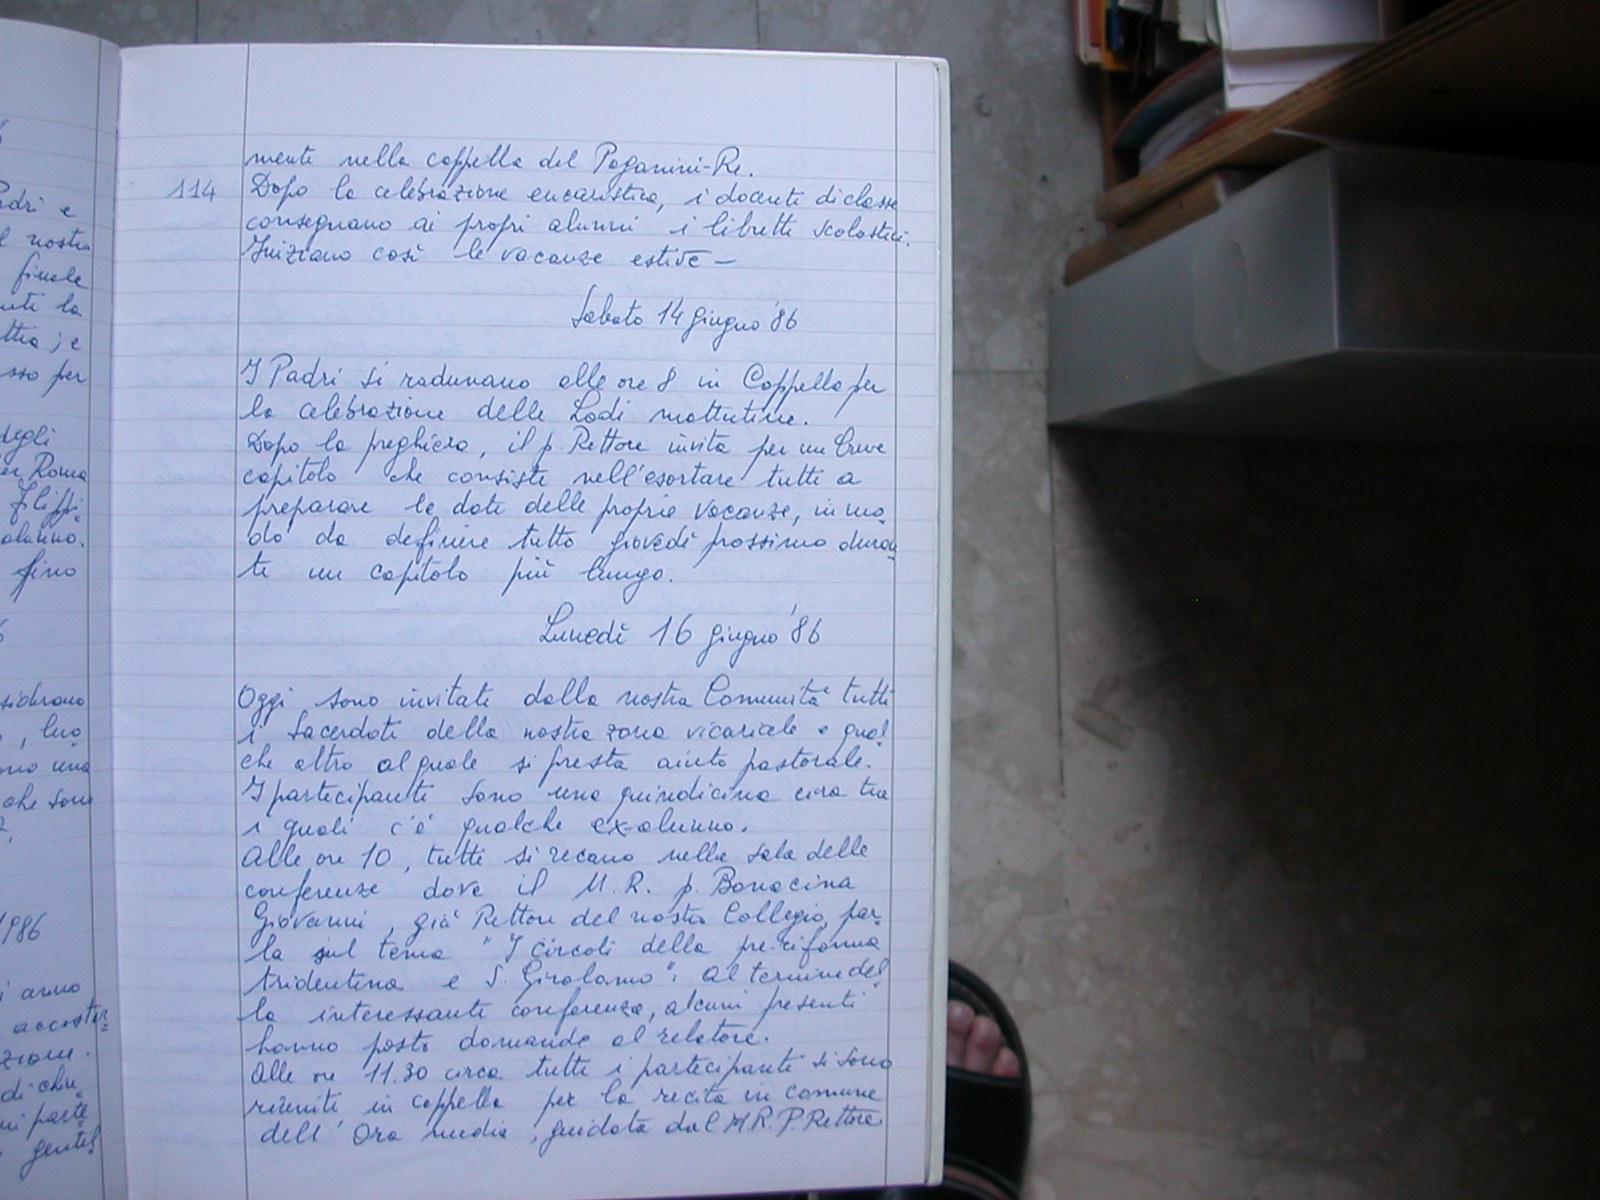 6
Padri e
l nostro
finale
nti la
ttia ; e
sso per
degli
er Roma
Filippi-
alunno.
fino
6
siderano
, luo-
ono una
che sono
1986
i anno
accostar-
zione.
di-chi
ni parte
gentil
mente nella cappella del Paganini-Re.
114 Dopo la celebrazione eucaristica, i docenti di classe
consegnano ai propri alunni i libretti scolastici.
Iniziano così le vacanze estive —
Sabato 14 giugno '86
I Padri si radunano alle ore 8 in Cappella per
la celebrazione delle Lodi mattutine.
Dopo la preghiera, il p. Rettore invita per un breve
capitolo che consiste nell'esortare tutti a
preparare le date delle proprie vacanze, in mo-
do da definire tutto giovedì prossimo duran
te un capitolo più lungo.
Lunedì 16 giugno '86
Oggi sono invitati dalla nostra Comunità tutti
i Sacerdoti della nostra zona vicariale e qual
che altro al quale si presta aiuto pastorale.
I partecipanti sono una quindicina circa tra
i quali c'è qualche ex-alunno.
Alle ore 10, tutti si recano nella sala delle
conferenze dove il M. R. p. Bonacina
Giovanni, già Rettore del nostro Collegio, par-
la sul tema "I circoli della pre-riforma
tridentina e S. Girolamo". Al termine del
la interessante conferenza, alcuni presenti
hanno posto domande al relatore.
Alle ore 11.30 circa tutti i partecipanti si sono
riuniti in cappella per la recita in comune
dell'Ora media, guidata dal M.R. P. Rettore